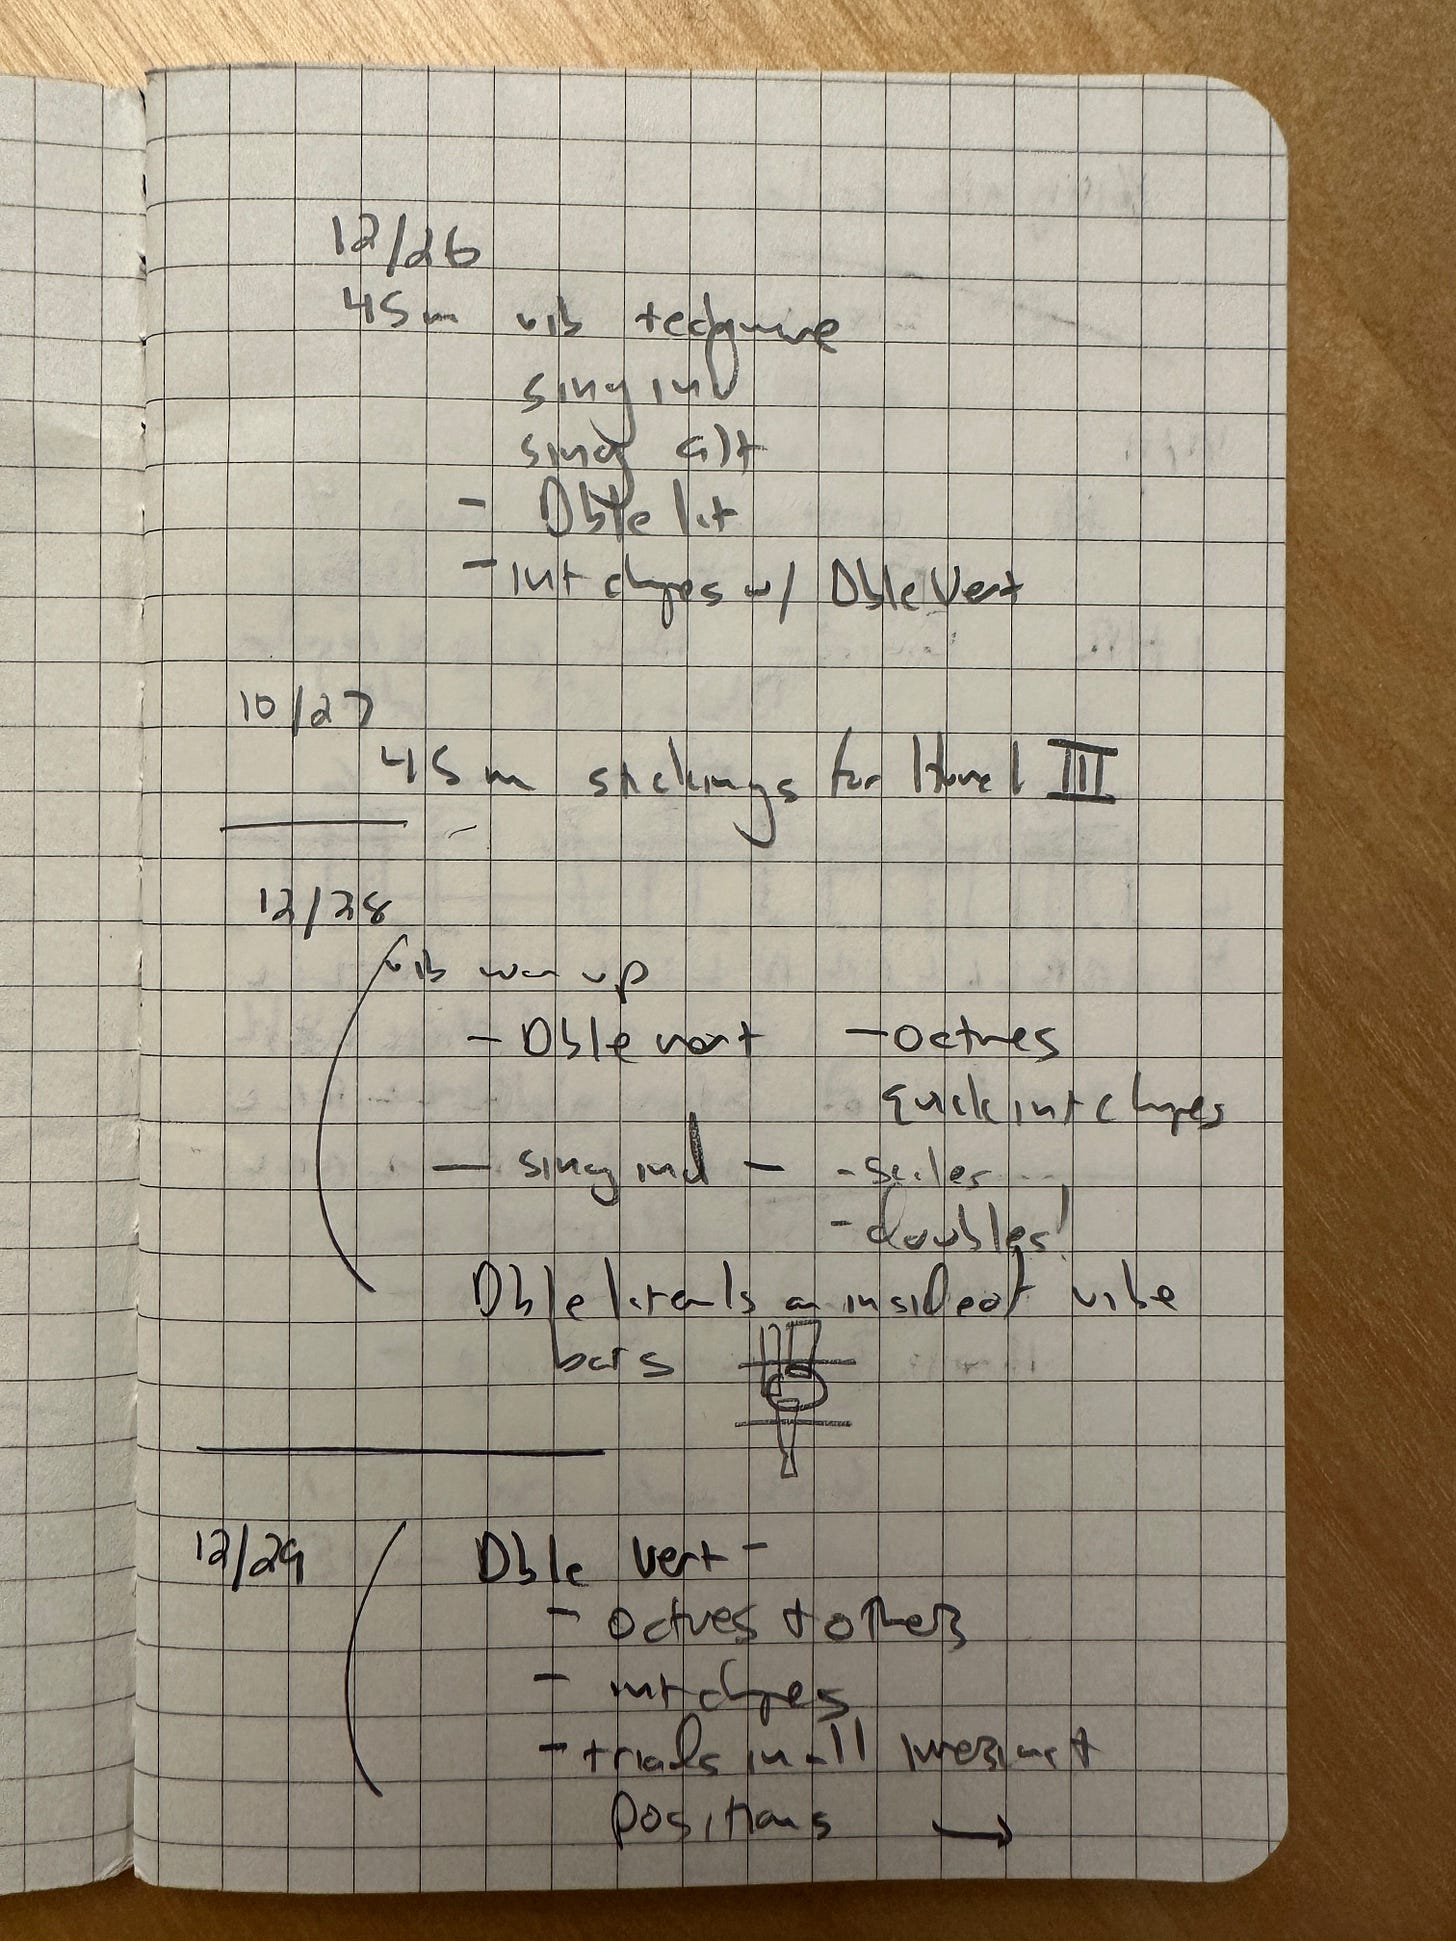 12/26
45m vib technique
sing ind
sing alt
- Dble lat
- int chnges w/ Dble Vert
10/27
45m stickings for III
12/28
vib warm up
- Dble vert - octves
quick int chnges
- sing ind - - scales
- doubles!
Dble laterals on inside of vibe
bars
12/29
Dble Vert -
- octves + others
- int chnges
- triads in all inversion
positions →